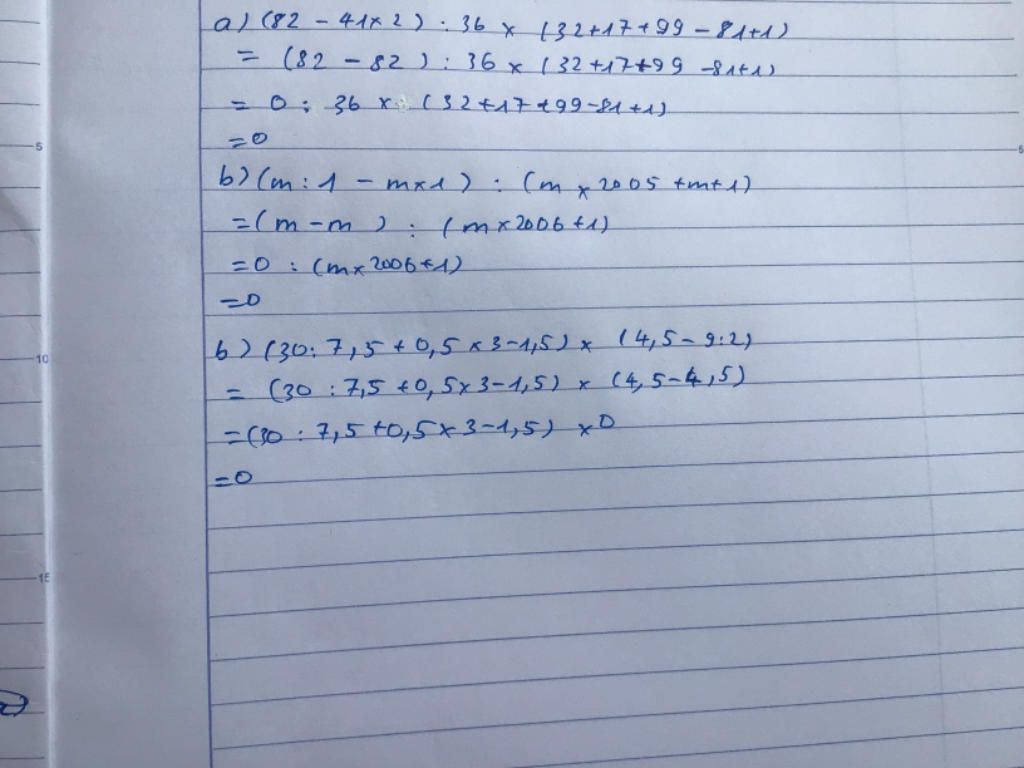 a) (82 - 41 x 2) : 36 x (32+17+99-81+1)
= (82 - 82) : 36 x (32+17+99-81+1)
= 0 : 36 x (32+17+99-81+1)
=0
b) (m : 1 - m x 1) : (m x 2005 + m+1)
= (m - m) : (m x 2006 +1)
=0 : (m x 2006+1)
=0
b) (30 : 7,5 + 0,5 x 3 - 1,5) x (4,5 - 9:2)
= (30 : 7,5 + 0,5 x 3 - 1,5) x (4,5 - 4,5)
= (30 : 7,5 + 0,5 x 3 - 1,5) x 0
=0
5
10
15
5